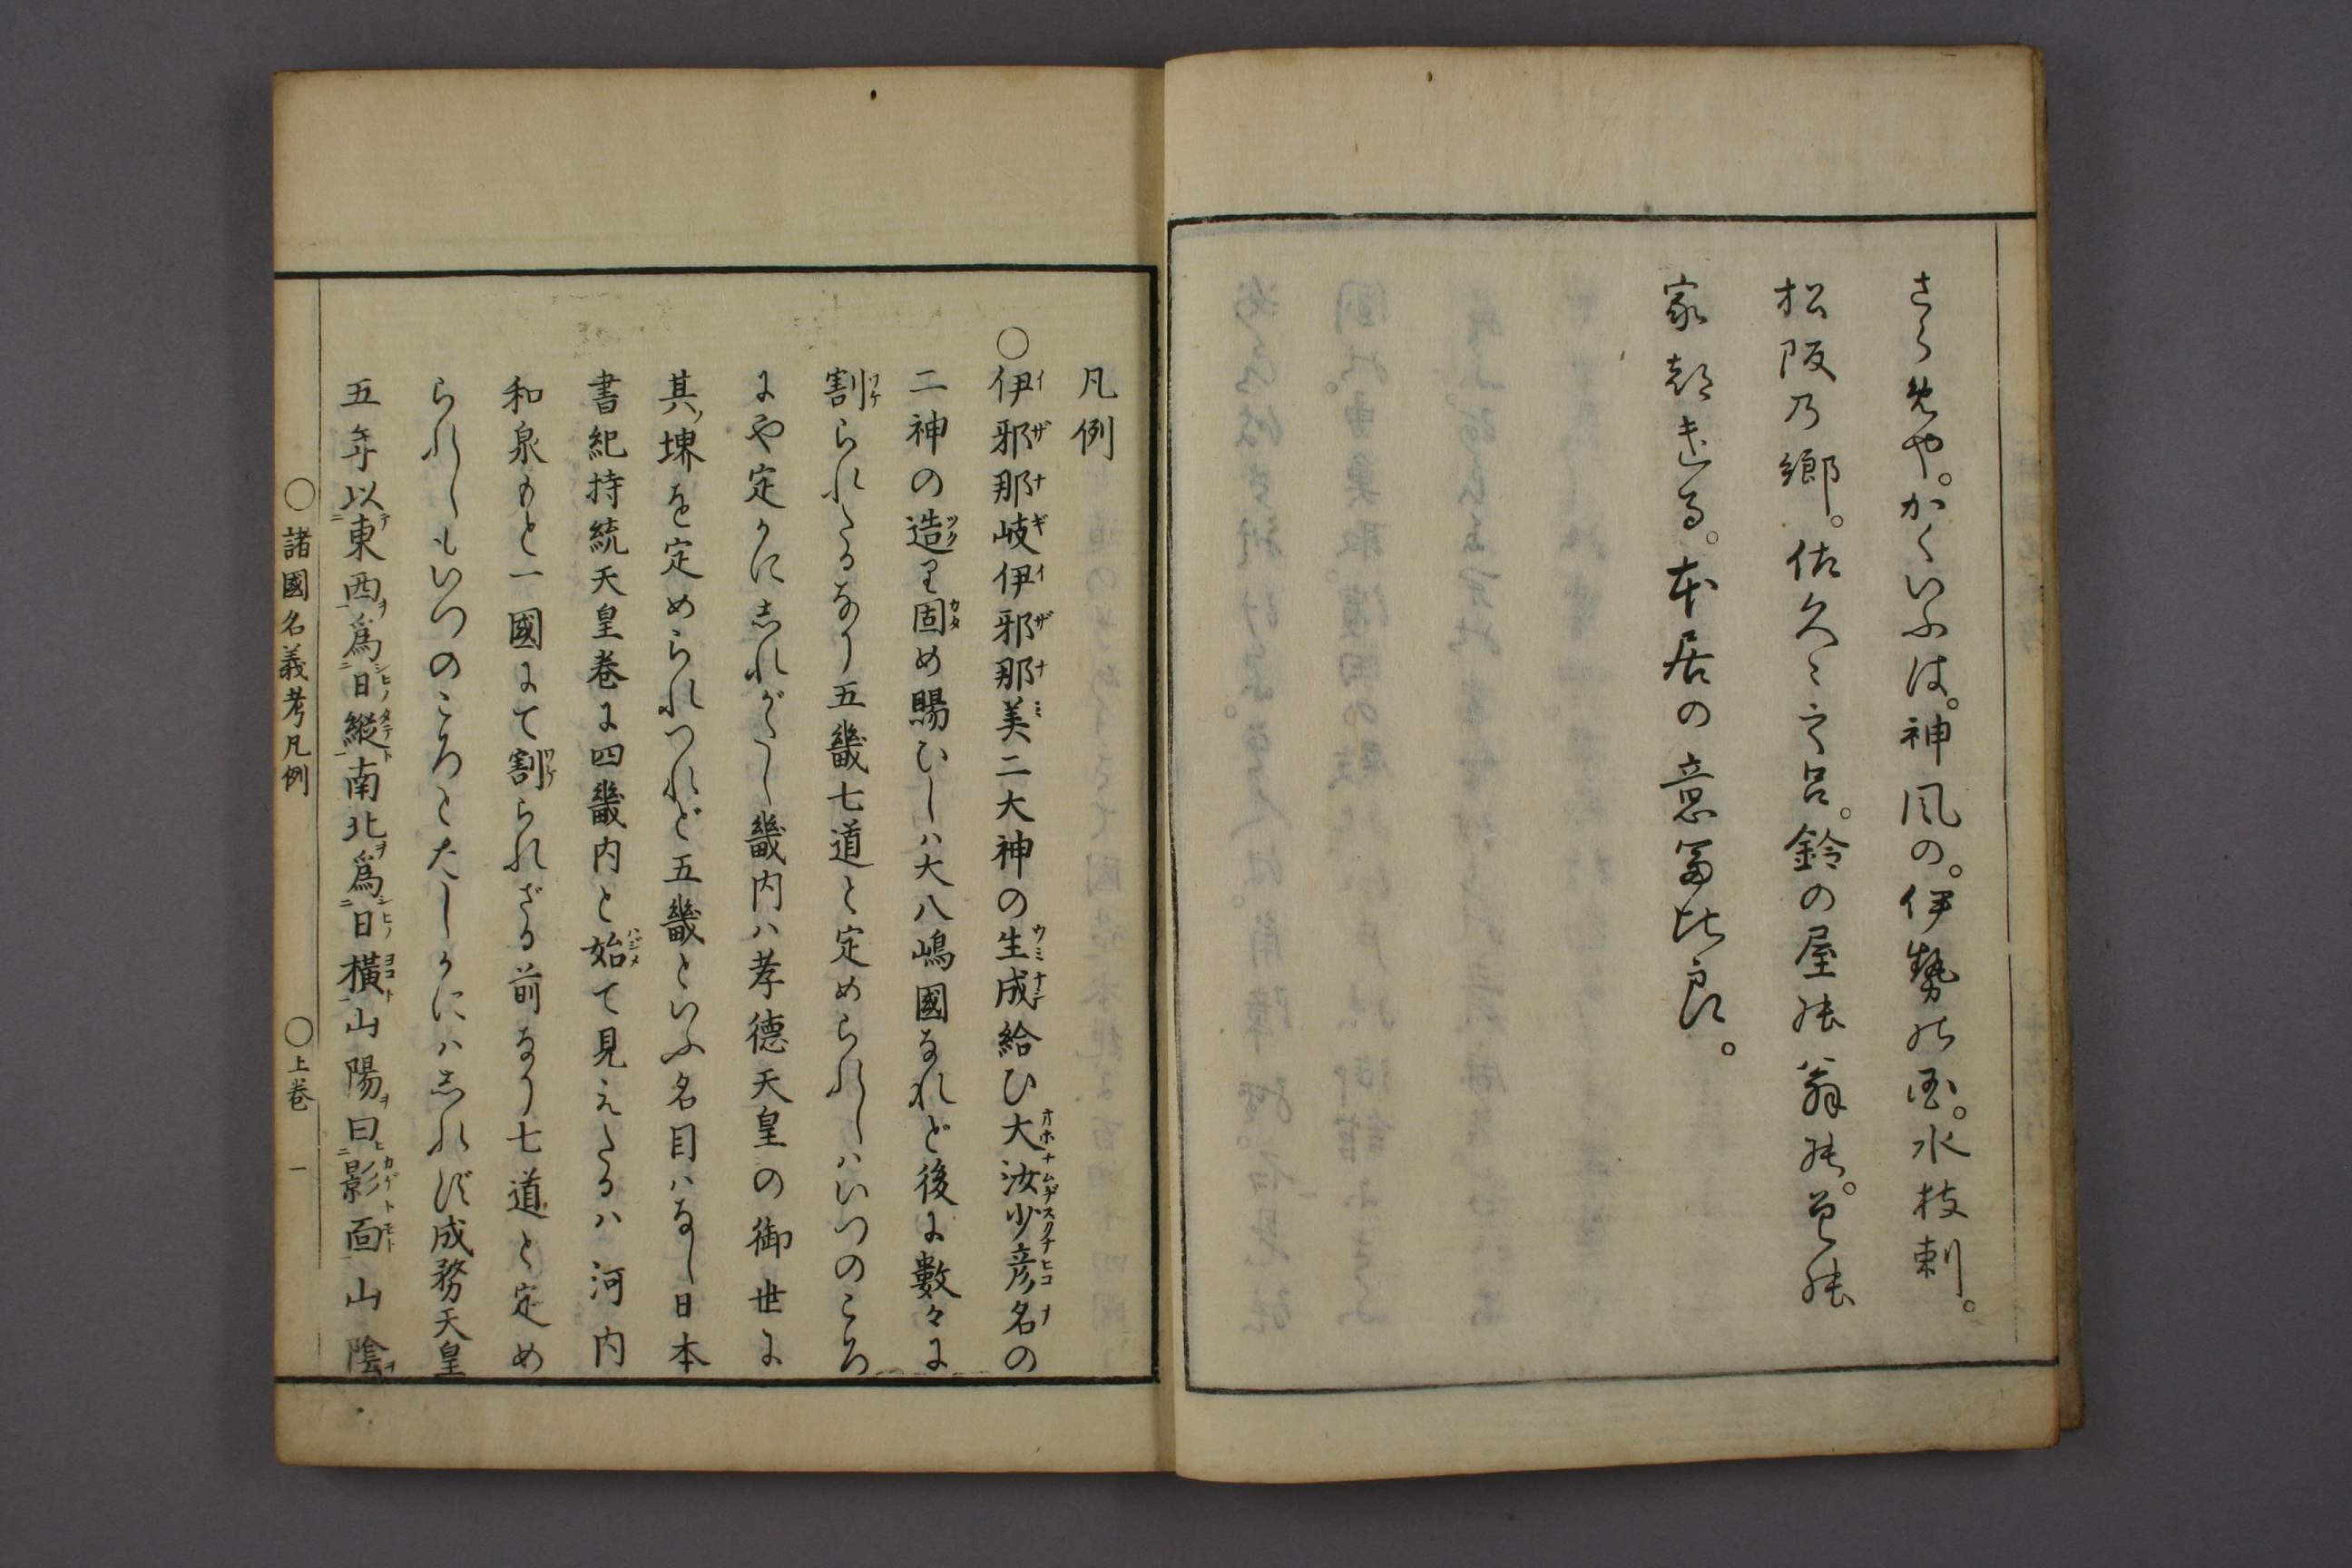 さらめや。かくいふは。神風の。伊勢能国。水枝刺。
松阪乃郷。佐久々之呂。鈴の屋能翁能。曽能
家都またる。本居の意富比良。
凡例
○伊邪那岐伊邪那美二大神の生成給ひ大汝少彦名の
二神の造り固め賜ひしハ大八嶋國なれど後に數々に
割られたるなり五畿七道と定められしハいつのころ
にや定かに志れがたし畿内ハ孝德天皇の御世に
其ノ堺を定められつれど五畿といふ名目ハなし日本
書紀持統天皇巻に四畿内と始て見えたるハ河内
和泉もと一國にて割られざる前なり七道と定め
られしもいつのころとたしかにハ志れず成務天皇
五年以東西爲日縱南北爲日橫山陽曰影面山陰
○諸國名義考凡例 ○上巻 一